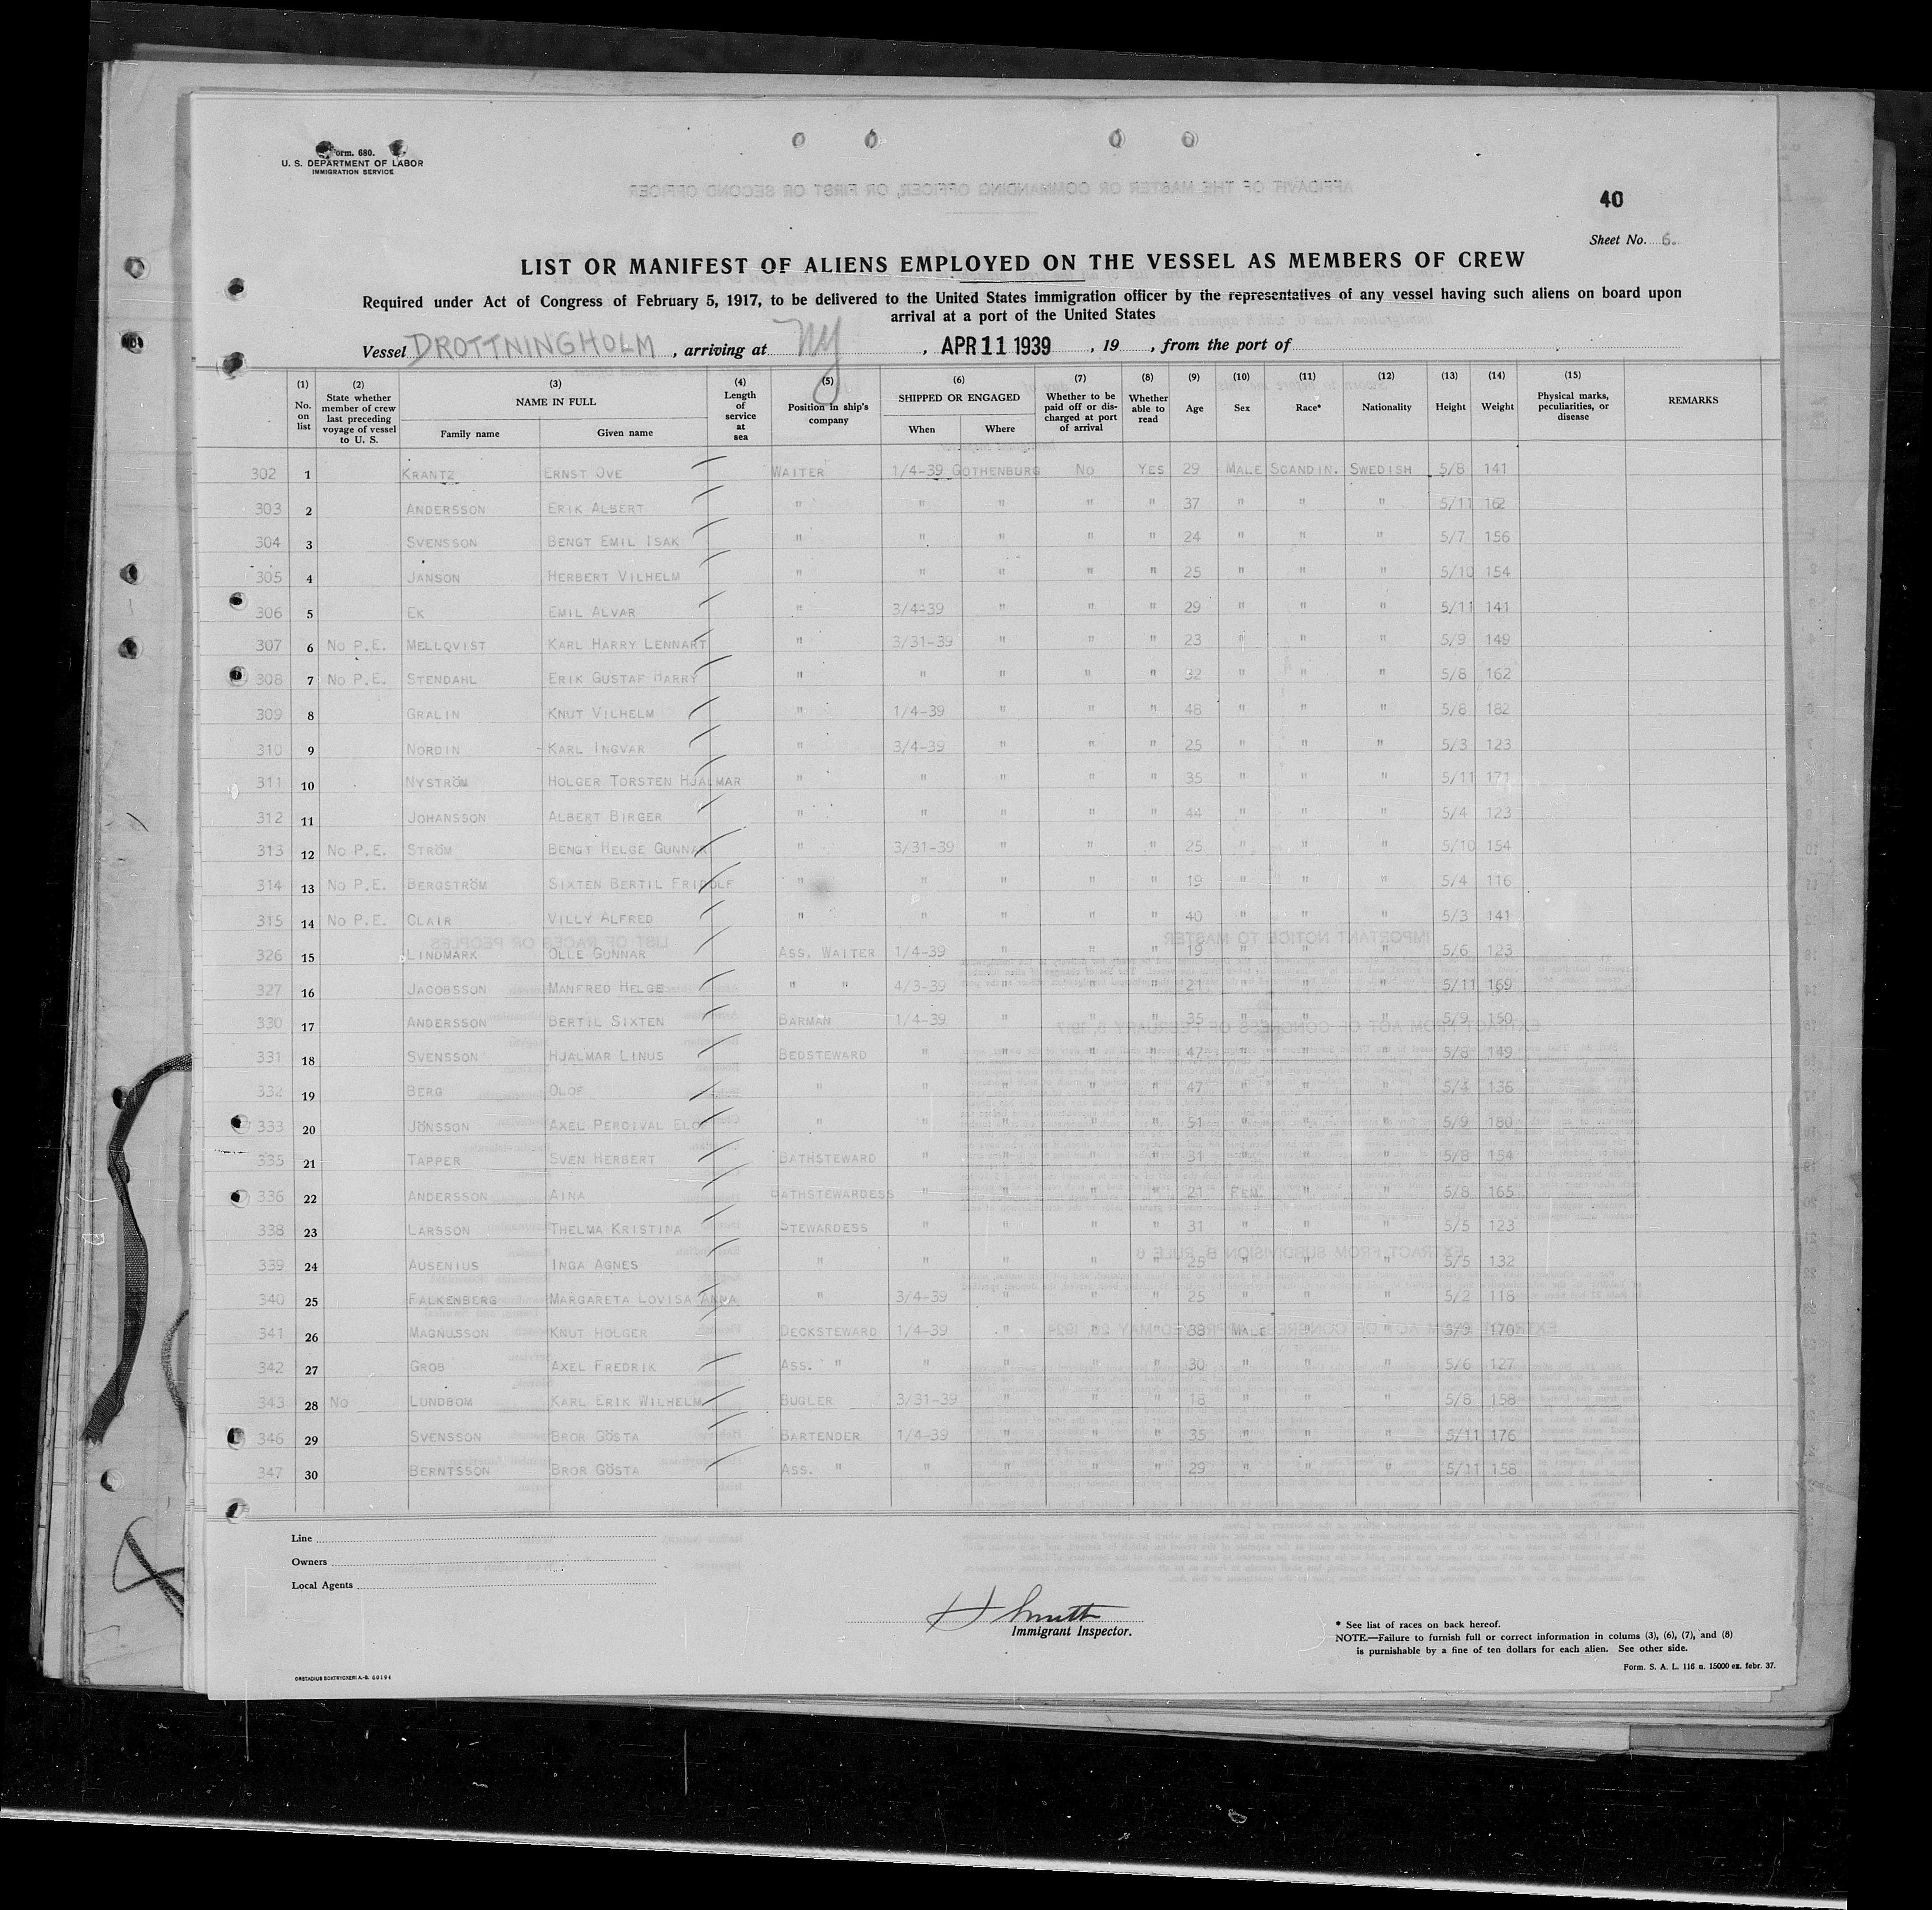 Form. 680.
U. S. DEPARTMENT OF LABOR
IMMIGRATION SERVICE
40
Sheet No. 6.
LIST OR MANIFEST OF ALIENS EMPLOYED ON THE VESSEL AS MEMBERS OF CREW
Required under Act of Congress of February 5, 1917, to be delivered to the United States immigration officer by the representatives of any vessel having such aliens on board upon
arrival at a port of the United States
Vessel DROTTNINGHOLM, arriving at NY, APR 11 1939, 19 , from the port of
(1) No. on list (2) State whether member of crew last preceding voyage of vessel to U. S. (3) NAME IN FULL Family name Given name (4) Length of service at sea (5) Position in ship's company (6) SHIPPED OR ENGAGED When Where (7) Whether to be paid off or discharged at port of arrival (8) Whether able to read (9) Age (10) Sex (11) Race* (12) Nationality (13) Height (14) Weight (15) Physical marks, peculiarities, or disease REMARKS
302 1 KRANTZ ERNST OVE WAITER 1/4-39 GOTHENBURG NO YES 29 MALE SCANDIN. SWEDISH 5/8 141
303 2 ANDERSSON ERIK ALBERT " " " " " 37 " " " 5/11 162
304 3 SVENSSON BENGT EMIL ISAK " " " " " 24 " " " 5/7 156
305 4 JANSON HERBERT VILHELM " " " " " 25 " " " 5/10 154
306 5 EK EMIL ALVAR " 3/4-39 " " " 29 " " " 5/11 141
307 6 NO P.E. MELLQVIST KARL HARRY LENNART " 3/31-39 " " " 23 " " " 5/9 149
308 7 NO P.E. STENDAHL ERIK GUSTAF HARRY " " " " " 32 " " " 5/8 162
309 8 GRALIN KNUT VILHELM " 1/4-39 " " " 48 " " " 5/8 182
310 9 NORDIN KARL INGVAR " 3/4-39 " " " 25 " " " 5/3 123
311 10 NYSTRÖM HOLGER TORSTEN HJALMAR " " " " " 35 " " " 5/11 171
312 11 JOHANSSON ALBERT BIRGER " " " " " 44 " " " 5/4 123
313 12 NO P.E. STRÖM BENGT HELGE GUNNAR " 3/31-39 " " " 25 " " " 5/10 154
314 13 NO P.E. BERGSTRÖM SIXTEN BERTIL FRIDOLF " " " " " 19 " " " 5/4 116
315 14 NO P.E. CLAIR VILLY ALFRED " " " " " 40 " " " 5/3 141
326 15 LINDMARK OLLE GUNNAR ASS. WAITER 1/4-39 " " " 19 " " " 5/6 123
327 16 JACOBSSON MANFRED HELGE " " 4/3-39 " " " 21 " " " 5/11 169
330 17 ANDERSSON BERTIL SIXTEN BARMAN 1/4-39 " " " 35 " " " 5/9 150
331 18 SVENSSON HJALMAR LINUS BEDSTEWARD " " " " 47 " " " 5/8 149
332 19 BERG OLOF " " " " " 47 " " " 5/4 136
333 20 JÖNSSON AXEL PERCIVAL ELOF " " " " " 51 " " " 5/9 180
335 21 TAPPER SVEN HERBERT BATHSTEWARD " " " " 31 " " " 5/8 154
336 22 ANDERSSON AINA BATHSTEWARDESS " " " " 21 FEM. " " 5/8 165
338 23 LARSSON THELMA KRISTINA STEWARDESS " " " " 31 " " " 5/5 123
339 24 AUSENIUS INGA AGNES " " " " " 25 " " " 5/5 132
340 25 FALKENBERG MARGARETA LOVISA ANNA " 3/4-39 " " " 25 " " " 5/2 118
341 26 MAGNUSSON KNUT HOLGER DECKSTEWARD 1/4-39 " " " 38 MALE " " 5/9 170
342 27 GROB AXEL FREDRIK ASS. " " " " " 30 " " " 5/6 127
343 28 NO LUNDBOM KARL ERIK WILHELM BUGLER 3/31-39 " " " 18 " " " 5/8 158
346 29 SVENSSON BROR GÖSTA BARTENDER 1/4-39 " " " 35 " " " 5/11 176
347 30 BERNTSSON BROR GÖSTA ASS. " " " " " 29 " " " 5/11 158
Line
Owners
Local Agents
Immigrant Inspector.
* See list of races on back hereof.
NOTE.—Failure to furnish full or correct information in colums (3), (6), (7), and (8)
is purnishable by a fine of ten dollars for each alien. See other side.
Form. S. A. L. 116 n. 15000 ex. febr. 37.